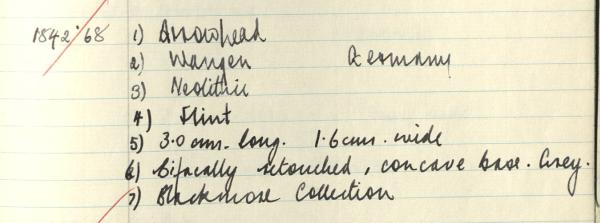 1842·68 1) Arrowhead
2) Wangen Germany
3) Neolithic
4) Flint
5) 3.0 cms. long. 1.6 cms. wide
6) bifacally retouched, concave base. Grey.
7) Blackmore Collection